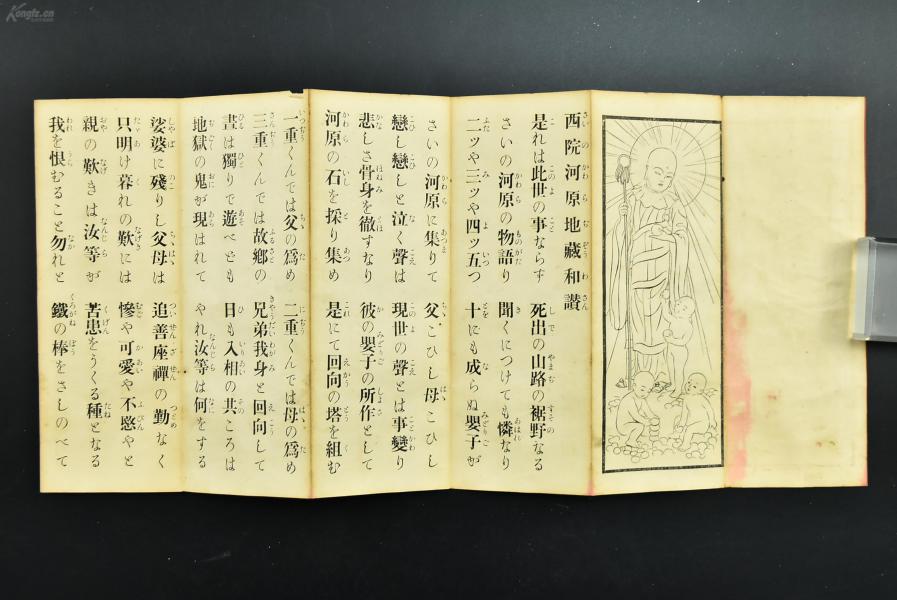 西院河原地藏和讃
是れは此世の事ならす
死出の山路の裾野なる
さいの河原の物語り
聞くにつけても憐なり
二ツや三ツや四ツ五つ
十にも成らぬ嬰子が
さいの河原に集りて
父こひし母こひし
戀し戀しと泣く聲は
現世の聲とは事變り
悲しさ骨身を徹すなり
彼の嬰子の所作として
河原の石を採り集め
是にて回向の塔を組む
一重くんでは父の爲め
二重くんでは母の爲め
三重くんでは故鄕の
兄弟我身と回向して
晝は獨りで遊べども
日も入相の其ころは
地獄の鬼が現はれて
やれ汝等は何をする
娑婆に殘りし父母は
追善座禪の勤なく
只明け暮れの歎には
慘や可愛や不愍やと
親の歎きは汝等が
苦患をうくる種となる
我を恨むること勿れと
鐵の棒をさしのべて
Kongfz.cn